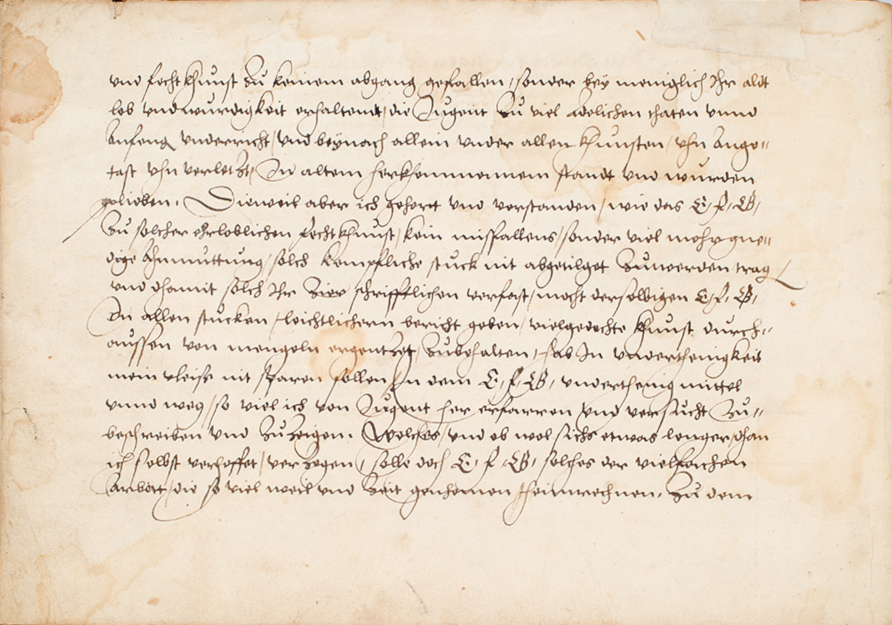 vnd fecht khunst zu keinem abgang gefallen, sonder bey meniglich Ihr aldt
lob vnd wurdigkeit erhaltendt, die Jugent zu viel adelichen thaten vnnd
anfeng vnderricht, vnd beynach allein vnder allen khunsten, vhn ange-
tast vhn verletzt, In altem herkhommenem standt vnd wurden
gelieben. Dieweil aber ich gehort vnd verstanden, wie das E. f. G.
zu solcher ehrloblichen fechtkhunst, kein misfallens, sonder viel mehr gne-
dige Anmuttung, solch kempfliche stuck nit abgetilget zu werden trag
vnd damit solch Ihr zier schrifftlichen verfast, mocht derselbigen E. f. G.
In allen stucken, leichtlichern bericht geben, vielgedachte khunst durch-
aussen von mengeln ergentzet, zubehalten, hab In vnderthenigkeit
mein vleiss nit sparen sollen, In dem E. f. G. vnderthenig mittel
vnnd weg, so viel ich von Jugent her erfarren vnd versucht zu-
beschreiben vnd zu zeigen. Welches, vnd ob wol sichs etwas lenger, dhan
ich selbst verhoffet, verzogen, solle doch E. f. G. solches der vielfachen
Arbeit, die so viel weil vnd zeit genhomen, heimrechnen. Zu dem